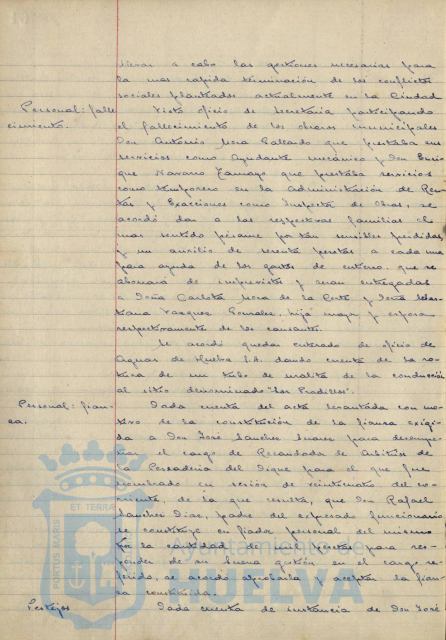 llevar a cabo las gestiones necesarias para
la mas rapida terminación de los conflictos
sociales planteados actualmente en la Ciudad
Personal: falle
cimiento.
Visto oficio de Secretaria participando
el fallecimiento de los obreros municipales
Don Antonio Mora Gallardo que prestaba sus
servicios como Ayudante mecánico y Don Enri
que Navarro Tamayo que prestaba servicios
como temporero en la Administración de Ren
tas y Exacciones como Inspector de Obras, se
acordó dar a las respectivas familias el
mas sentido pésame por tan sensibles perdidas
y un auxilio de pesetas a cada una
para ayuda de los gastos de entierro, que se
abonará de imprevistos y seran entregadas
a Doña Carlota Mora de la Corte y Doña
Vazquez Gonzalez, hija mayor y esposa
respectivamente de los causantes.
Se acordó quedar enterado de oficio de
Aguas de Huelva S.A. dando cuenta de la ro
tura de un tubo de uralita de la conducción
al sitio denominado "Los Pradillos".
Personal: fian-
za.
Dada cuenta del acta levantada con mo
tivo de la constitución de la fianza exigi
da a Don José Sanchez Suarez para desempe
ñar el cargo de Recaudador de Arbitrios de
la Pescaderia del Dique para el que fue
nombrado en sesión de veintiocho del co
rriente, de la que resulta, que Don Rafael
Sanchez Diaz, padre del expresado funcionario
se constituye en fiador personal del mismo
por la cantidad de mil pesetas para res-
ponder de su buena gestión en el cargo re
ferido, se acordó aprobarla y aceptar la fian
za constituida.
Festejos
Dada cuenta de instancia de Don José
PORTUS MARIS
ET TERRAE
Ayuntamiento de
HUELVA